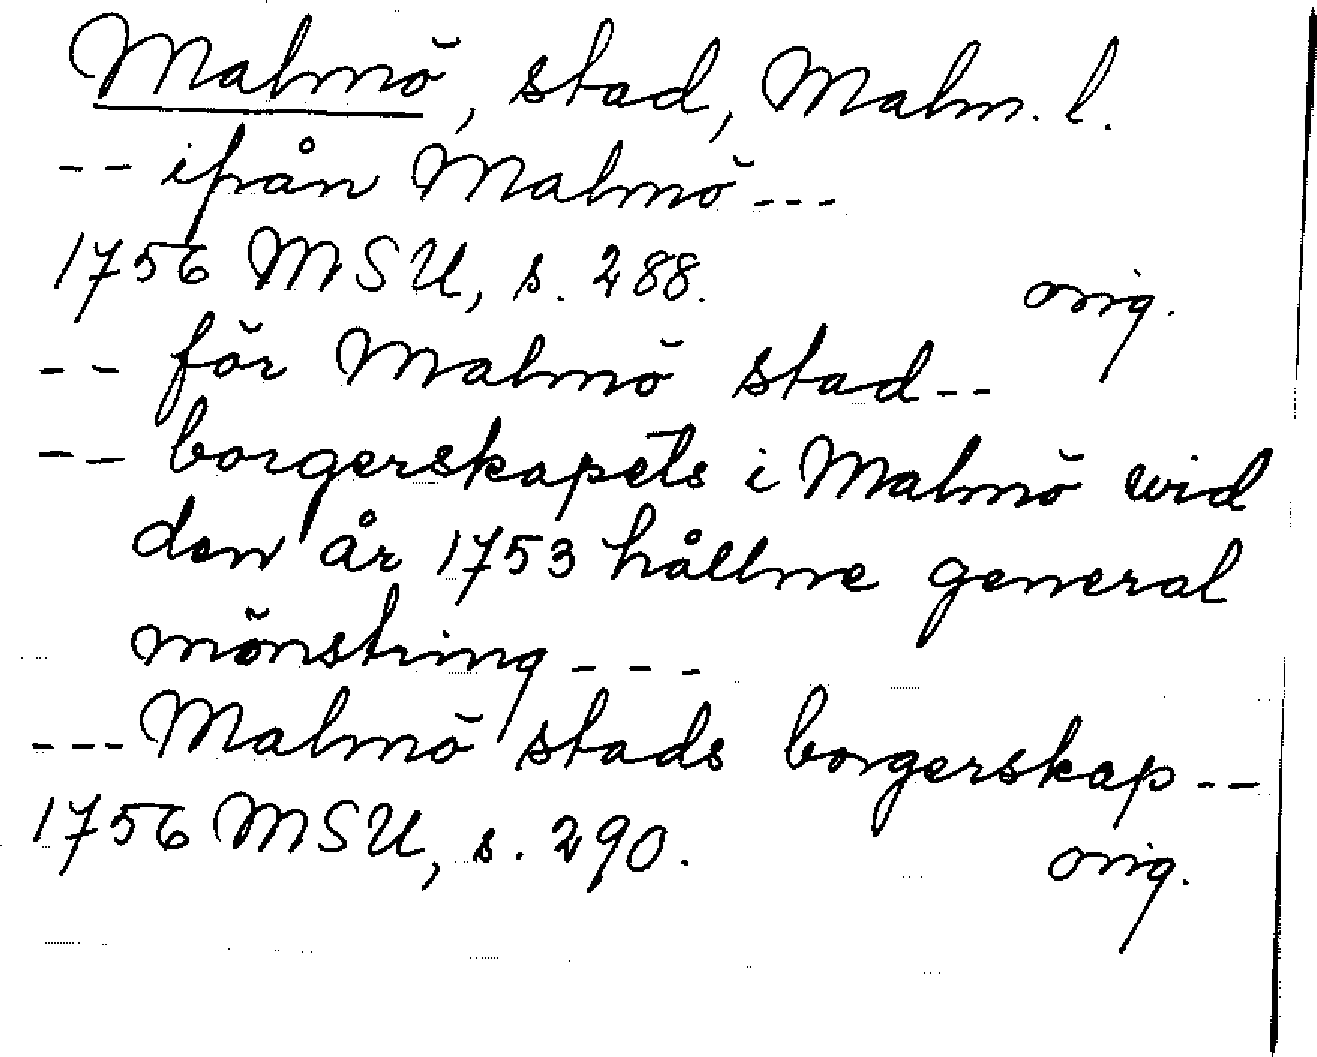 Malmö, stad, Malm. l.
-- ifrån Malmö ---
1756 MSU, s. 288. orig.
-- för Malmö stad --
-- borgerskapets i Malmö wid
den år 1753 hållne general
mönstring ---
--- Malmö stads borgerskap --
1756 MSU, s. 290. orig.